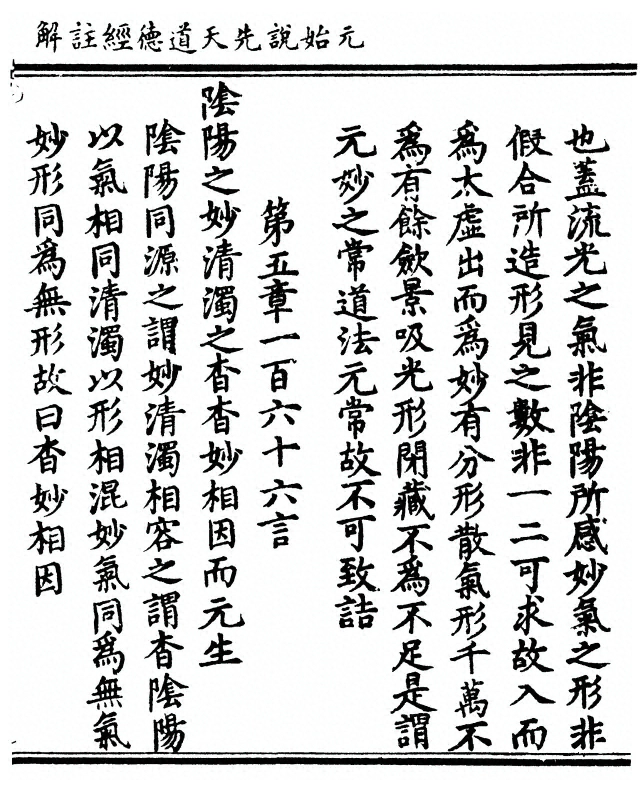 元始說先天道德經註解
也蓋流光之氣非陰陽所感妙氣之形非
假合所造形見之數非一二可求故入而
為太虛出而為妙有分形散氣形千萬不
為有餘斂景吸光形閉藏不為不足是謂
元妙之常道法元常故不可致詰
第五章一百六十六言
陰陽之妙清濁之杳杳妙相因而元生
陰陽同源之謂妙清濁相容之謂杳陰陽
以氣相同清濁以形相混妙氣同為無氣
妙形同為無形故曰杳妙相因